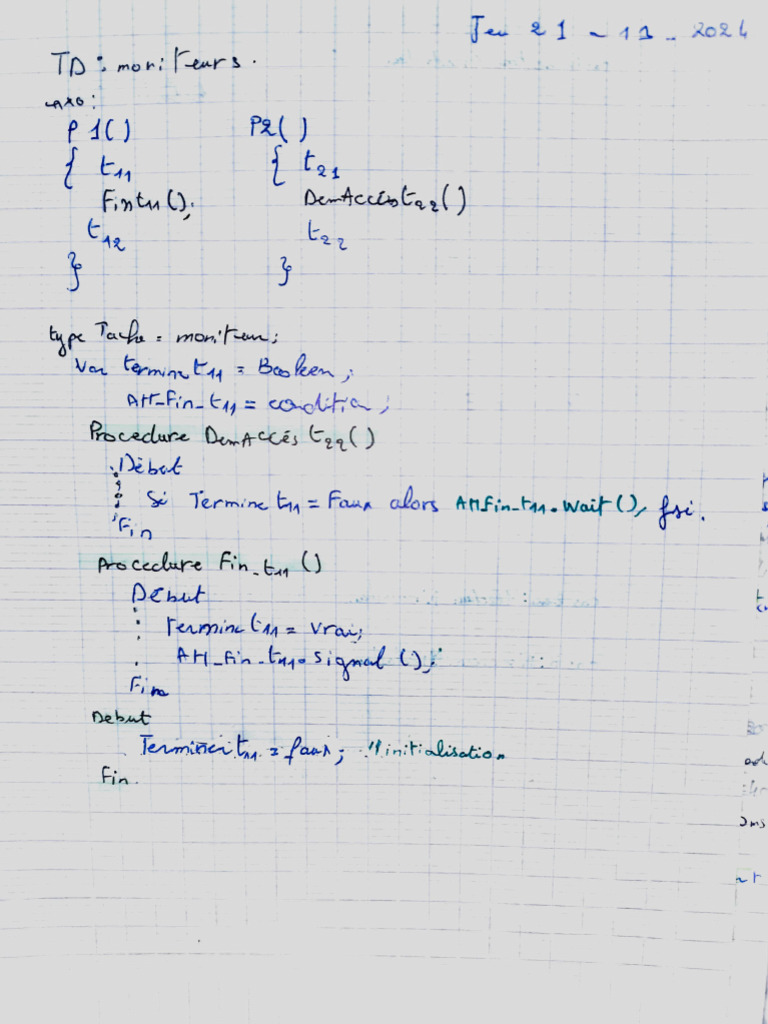 Jeu 21 - 11 - 2024
TD : moniteurs.
exo :
P1() P2()
{ t11 { t21
Fint11(); DemAccést22()
t12 t22
} }
type Tache = moniteur;
Var termine t11 = Booleen;
Att_Fin_t11 = condition;
Procedure DemAccés t22()
Début
Si Termine t11 = Faux alors Attfin_t11.wait(), fsi.
Fin
Procedure Fin_t11()
Début
Termine t11 = vrai;
Att_Fin_t11.signal();
Fin
Debut
Terminer t11 = faux; // initialisation
Fin.